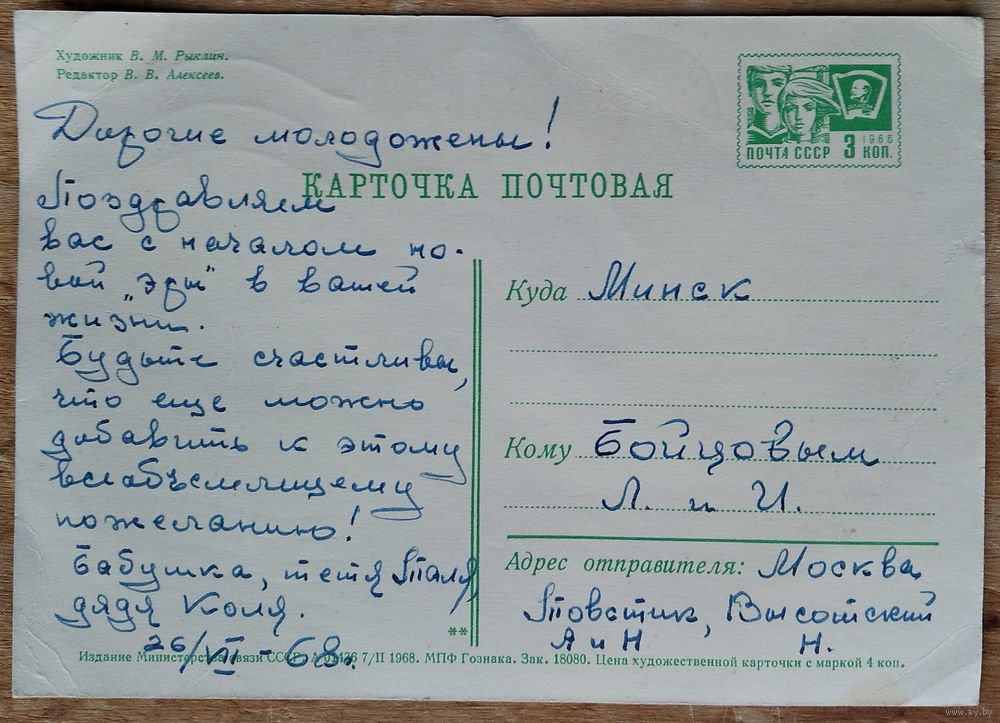 Художник В. М. Рыклин.
Редактор В. В. Алексеев.
ПОЧТА СССР 3 КОП.
1966
КАРТОЧКА ПОЧТОВАЯ
Дорогие молодожены!
Поздравляем
вас с началом но-
вой „эры" в вашей
жизни.
Будьте счастливы,
что еще можно
добавить к этому
всеобъемлющему
пожеланию!
Бабушка, тетя Таля,
дядя Коля.
26/VII-68г.
Куда Минск
Кому Бойцовым
Л. и И.
Адрес отправителя: Москва
Товстик, Высотский
А и Н Н.
**
Издание Министерства связи СССР. А 01426 7/II 1968. МПФ Гознака. Зак. 18080. Цена художественной карточки с маркой 4 коп.
www.ay.by